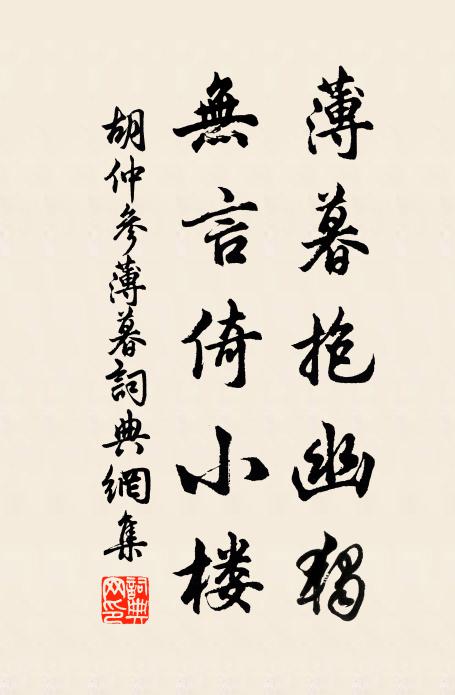 薄暮抱幽獨
無言倚小楼
胡仲參薄暮詞典網集
詞典
网印